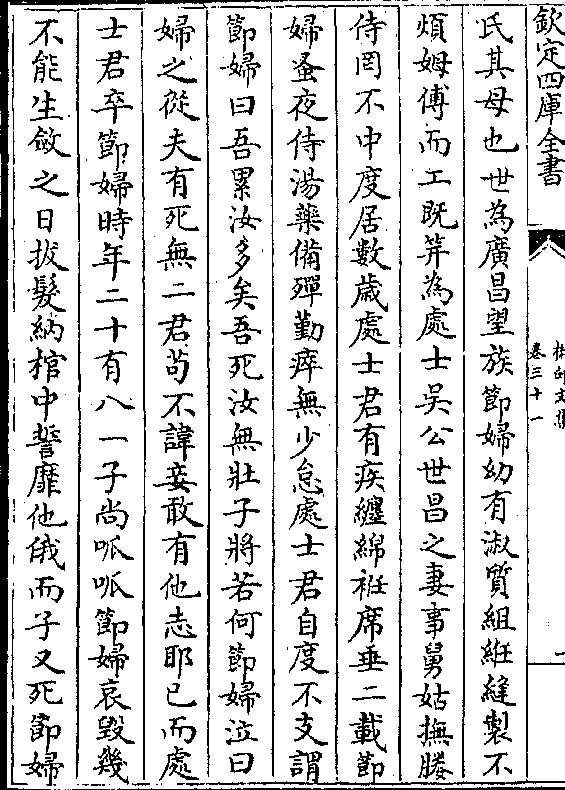 欽定四庫全書
卷三十一
一
氏其母也世為廣昌望族節婦幼有淑質組絍縫製不
煩姆傅而工既笄為處士吳公世昌之妻事舅姑撫媵
侍罔不中度居數歲處士君有疾纏綿袵席垂二載節
婦蚤夜侍湯藥備殫勤瘁無少怠處士君自度不支謂
節婦曰吾累汝多矣吾死汝無壯子將若何節婦泣曰
婦之從夫有死無二君茍不諱妾敢有他志耶已而處
士君卒節婦時年二十有八一子尚呱呱節婦哀毀幾
不能生斂之日拔髮納棺中誓靡他俄而子又死節婦